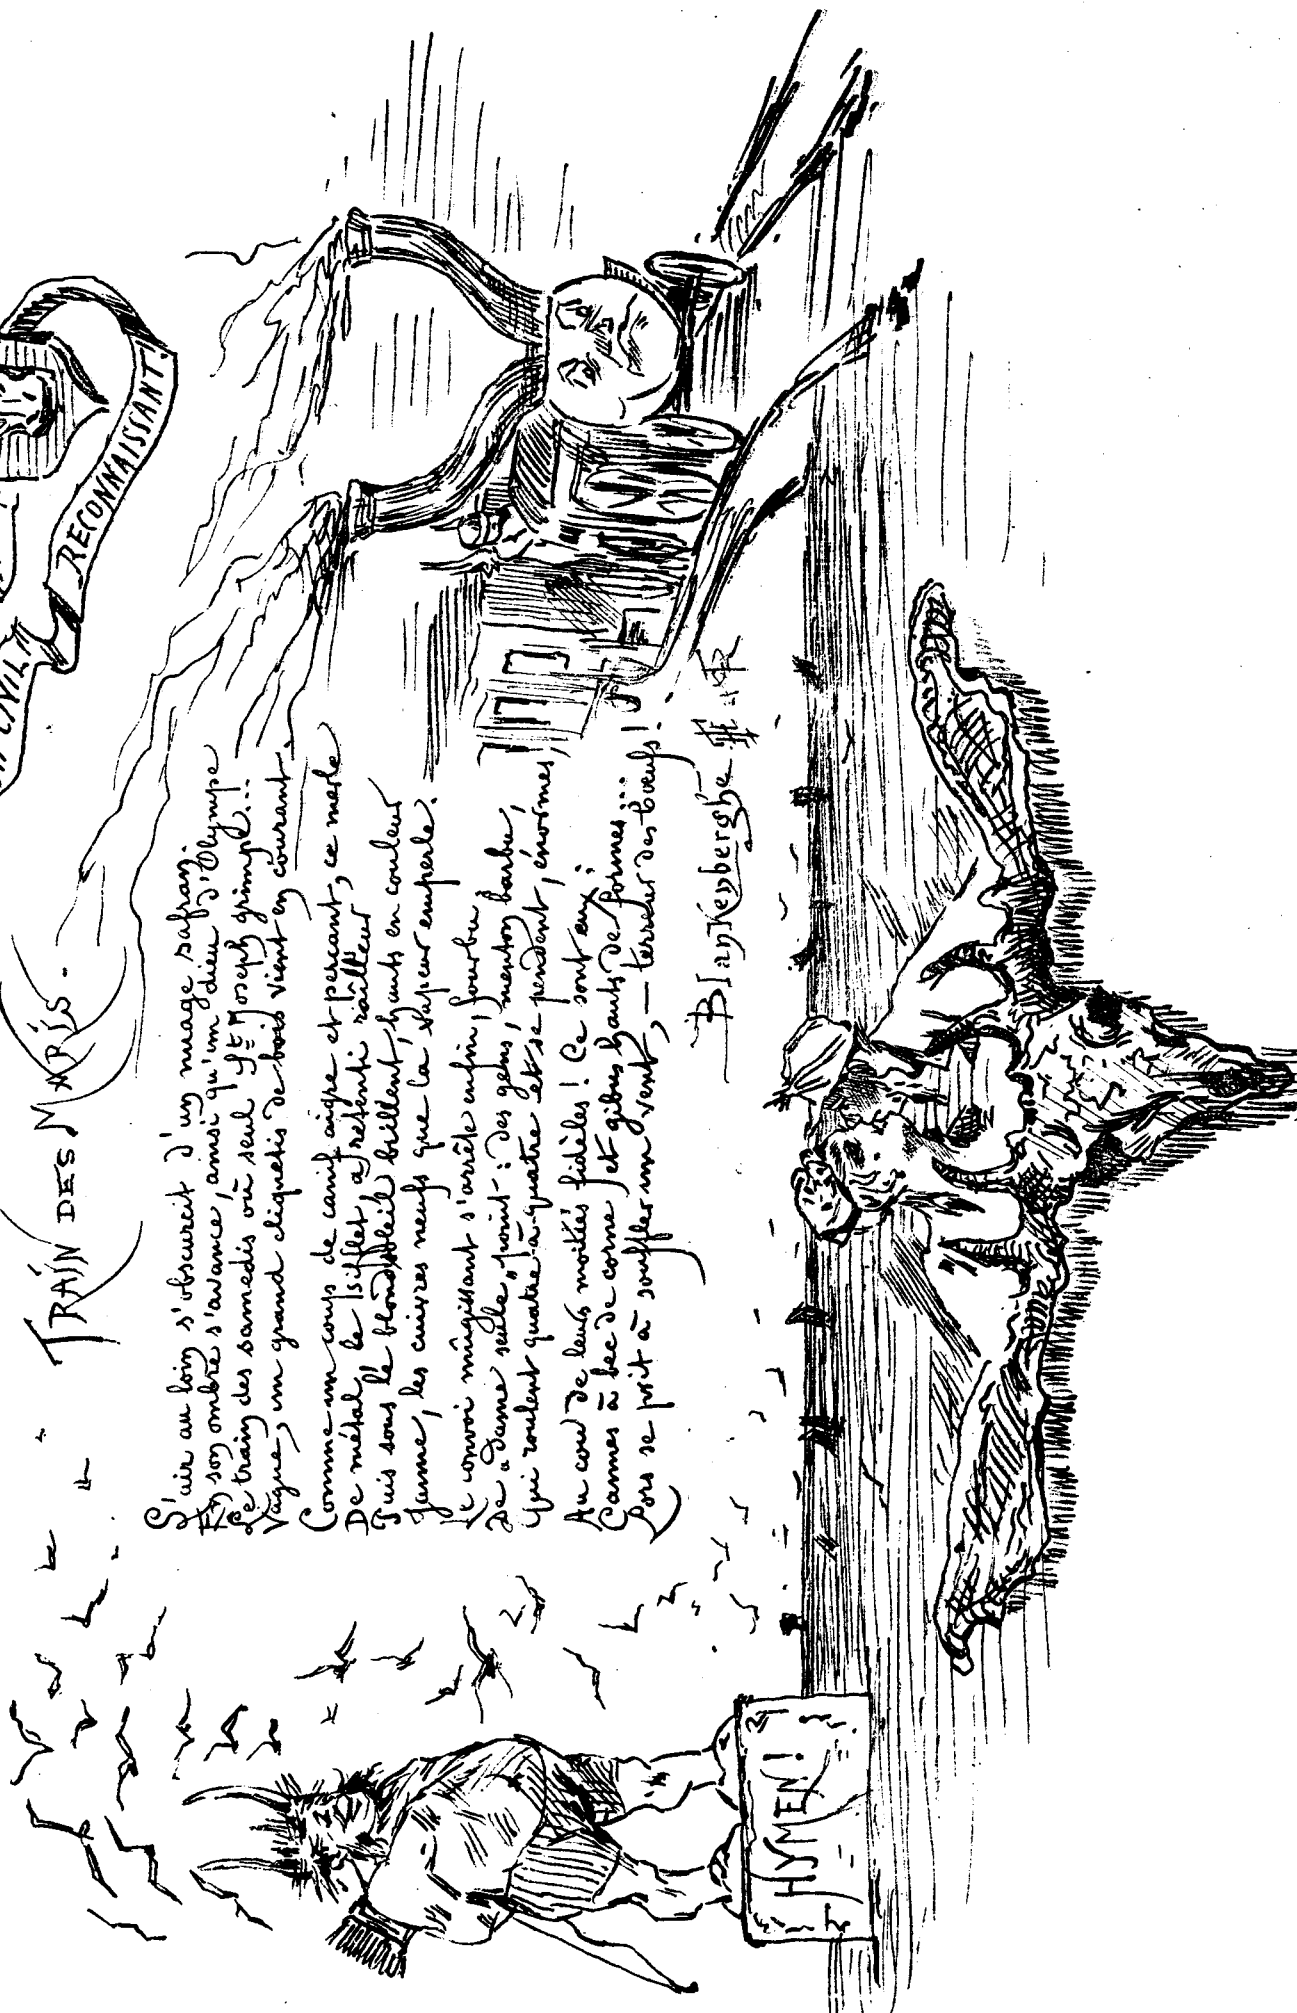 RECONNAISSANT.
TRAIN DES MARIS.
L'air au loin s'obscurcit d'un nuage safran.
En son ombre s'avance, ainsi qu'un dieu d'Olympe
Le train des samedis où seul St Joseph grimpe!...
Vague, un grand cliquetis de bois vient en courant.
Comme un coup de canif aigre et perçant, ce merle
De métal, le sifflet, a retenti railleur
Puis sous le blond soleil brillent, hauts en couleur
Jaune, les cuivres neufs que la vapeur emperle.
Le convoi mugissant s'arrête enfin, fourbu
De "dame seule" point: des gens, menton barbu,
Qui roulent quatre-à-quatre et se pendent, énormes,
Au cou de leurs moitiés fidèles! Ce sont eux;
Cannes à bec de corne et gibus hauts de formes...
Lors se prit à souffler un vent, — terreur des bœufs!
Blankenberghe
HYMEN!